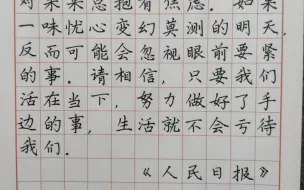 对未来总抱有焦虑。如果
一味忧心变幻莫测的明天，
反而可能会忽视眼前要紧
的事。请相信，只要我们
活在当下，努力做好了手
边的事，生活就不会亏待
我们.
《人民日报》